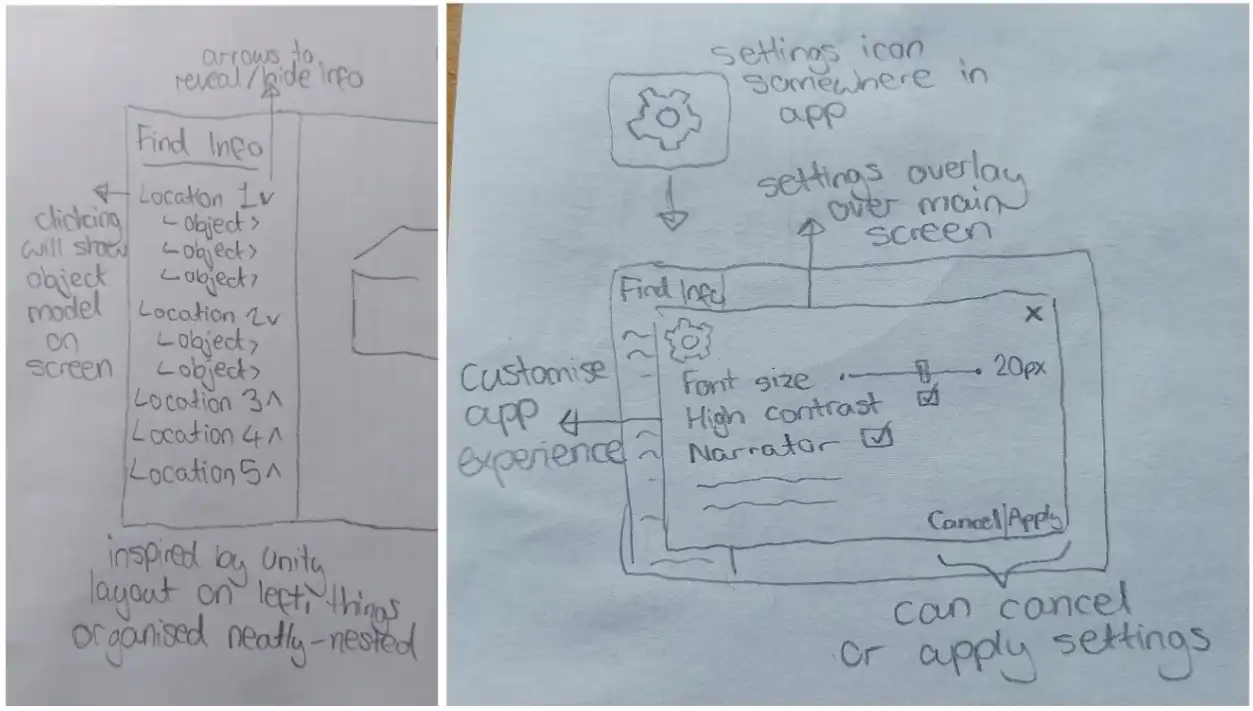 arrows to
reveal/hide info
Find Info
Location 1 v
<object>
<object>
<object>
Location 2 v
<object>
<object>
Location 3 ^
Location 4 ^
Location 5 ^
clicking
will show
object
model
on
screen
inspired by Unity
layout on left, things
organised neatly-nested
settings icon
somewhere in
app
settings overlay
over main
screen
Find Info
x
Font size 20px
High contrast
Narrator
Cancel|Apply
Customise
app
experience
can cancel
or apply settings